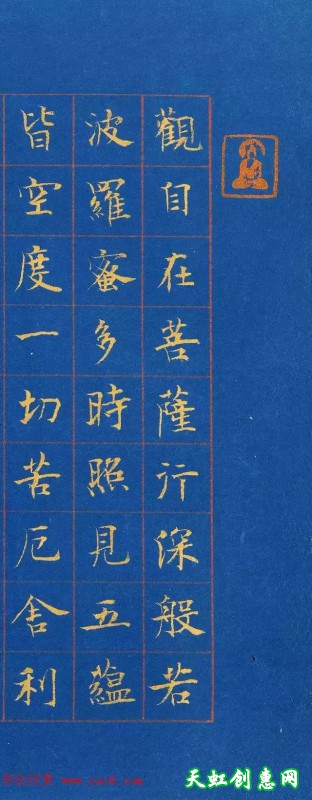 觀自在菩薩行深般若
波羅蜜多時照見五蘊
皆空度一切苦厄舍利
天虹创惠网